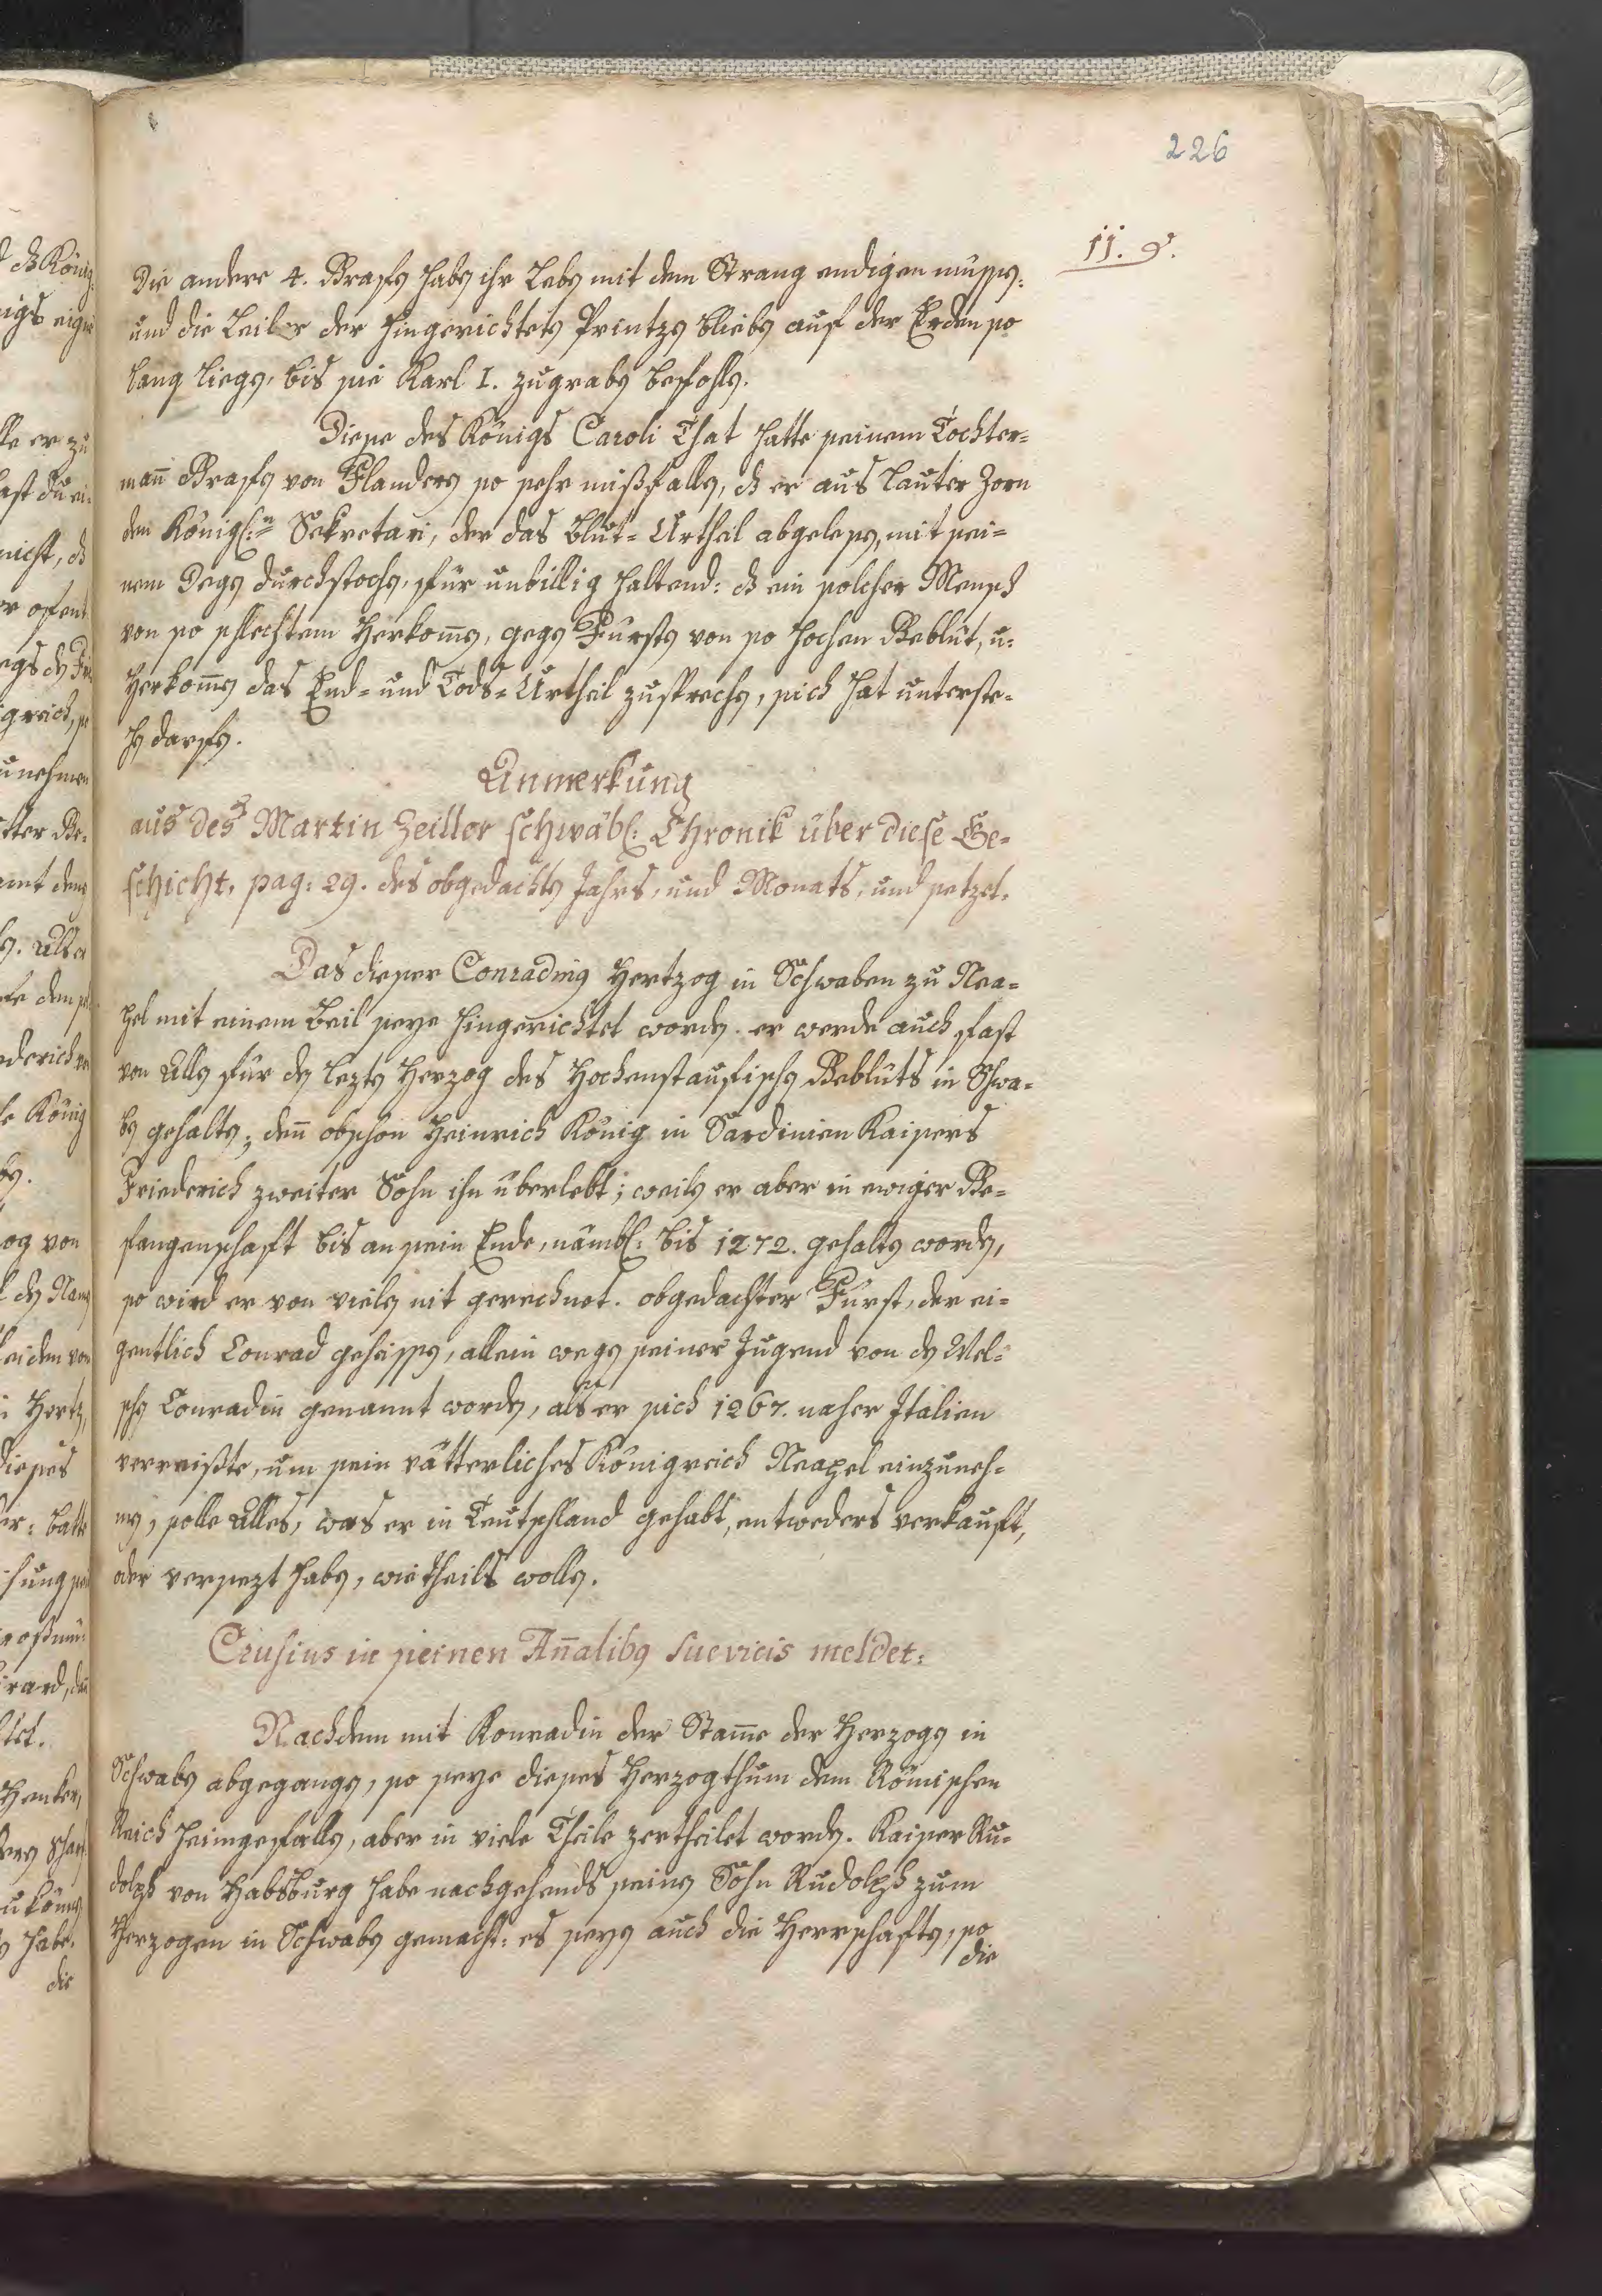 226
11. 9.
Die andere 4. Grafen haben ihr Leben mit dem Strang endigen müssen:
und die Leiber der hingerichteten Printzen blieben auf der Erden so
lang liegen, bis sie Karl I. zugraben befohlen.
Diese des Königs Caroli That hatte seinem Tochter=
mañ Grafen von Flandern so sehr mißfallen, dz er aus lauter Zorn
den Königl:n Sekretari, der das Blut= Urtheil abgelesen, mit sei=
nem Degen durchstochen, für unbillig haltend: dz ein solcher Mensch
von so schlechtem Herkom̄en, gegen Fürsten von so hochen Geblüt, u:
Herkom̄en das End= und Tods= Urtheil zusprechen, sich hat unterste=
hen darfen.
Anmerkung
aus des Martin Zeiller schwäbl: Chronik über diese Ge=
schicht, pag: 29. des obgedachten Jahrs, und Monats, und setzet.
Das dieser Conradinus Hertzog in Schwaben zu Nea=
pel mit einem Beil seye hingerichtet worden. er werde auch fast
von Allen für den lezten Herzog des Hochenstaufischen Geblüts in Schwa=
ben gehalten; deñ obschon Heinrich König in Sardinien Kaisers
Friederich zweiter Sohn ihn überlebt; weilen er aber in ewiger Ge=
fangenschaft bis an sein Ende, nämbl: bis 1272. gehalten worden,
so wird er von vielen nit gerechnet. obgedachter Fürst, der ei=
gentlich Conrad geheissen, allein wegen seiner Jugend von den Wel=
schen Conradin genannt worden, als er sich 1267. naher Italien
verreißte, um sein vätterliches Königreich Neapel einzuneh=
men, solle Alles, was er in Teutschland gehabt, entweders verkauft,
oder versezt haben, wie theils wollen.
Crusius in seinen Añalibus suevicis meldet:
Nachdem mit Konradin der Stam̄e der Herzogen in
Schwaben abgegangen, so seye dieses Herzogthum dem Römischen
Reich heimgefallen, aber in viele Theile zertheilet worden. Kaiser Ru=
dolph von Habsburg habe nachgehends seinen Sohn Rudolph zum
Herzogen in Schwaben gemacht: es seyen auch die Herrschaften, so
die